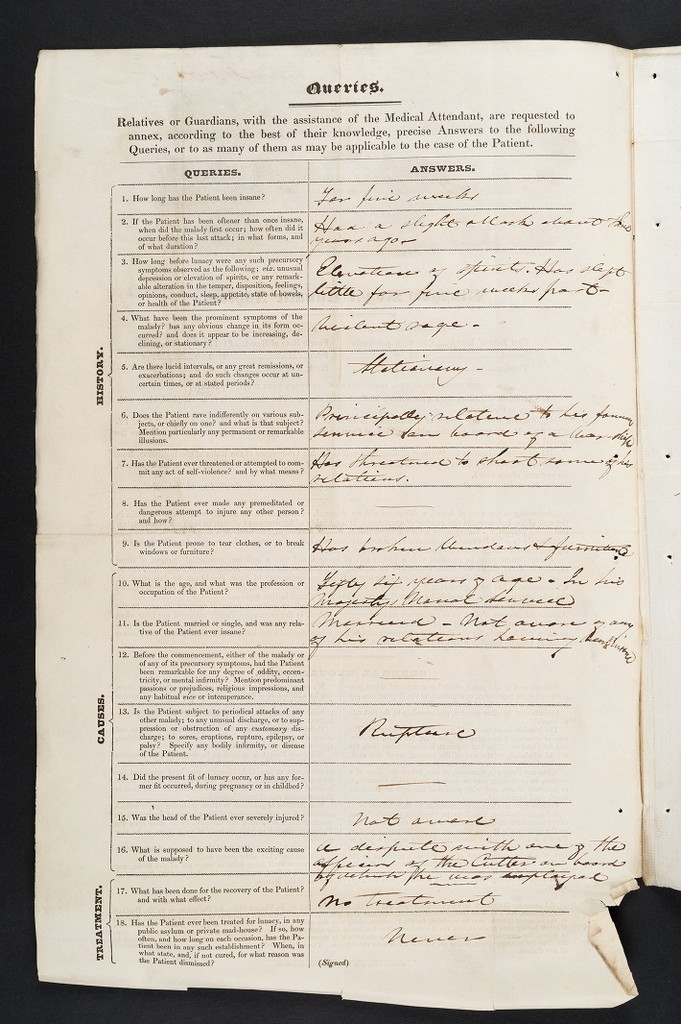 Queries.
Relatives or Guardians, with the assistance of the Medical Attendant, are requested to
annex, according to the best of their knowledge, precise Answers to the following
Queries, or to as many of them as may be applicable to the case of the Patient.
QUERIES.
ANSWERS.
HISTORY.
1. How long has the Patient been insane?
For five weeks
2. If the Patient has been oftener than once insane,
when did the malady first occur; how often did it
occur before this last attack; in what forms, and
of what duration?
Had a slight attack about two
years ago-
3. How long before lunacy were any such precursory
symptoms observed as the following; viz. unusual
depression or elevation of spirits, or any remark-
able alteration in the temper, disposition, feelings,
opinions, conduct, sleep, appetite, state of bowels,
or health of the Patient?
Elevation of spirits. Has slept
little for five weeks past-
4. What have been the prominent symptoms of the
malady? has any obvious change in its form oc-
curred? and does it appear to be increasing, de-
clining, or stationary?
Violent rage-
5. Are there lucid intervals, or any great remissions, or
exacerbations; and do such changes occur at un-
certain times, or at stated periods?
Stationary-
6. Does the Patient rave indifferently on various sub-
jects, or chiefly on one? and what is that subject?
Mention particularly any permanent or remarkable
illusions.
Principally relative to his former
service on board of a War ship
7. Has the Patient ever threatened or attempted to com-
mit any act of self-violence? and by what means?
Has threatened to shoot some of his
relations.
8. Has the Patient ever made any premeditated or
dangerous attempt to injure any other person?
and how?
9. Is the Patient prone to tear clothes, or to break
windows or furniture?
Has broken Windows & furniture
CAUSES.
10. What is the age, and what was the profession or
occupation of the Patient?
Fifty six years of age - In his
Majestys Naval Service
11. Is the Patient married or single, and was any rela-
tive of the Patient ever insane?
Married - Not aware of any
of his relations having been insane
12. Before the commencement, either of the malady or
of any of its precursory symptoms, had the Patient
been remarkable for any degree of oddity, eccen-
tricity, or mental infirmity? Mention predominant
passions or prejudices, religious impressions, and
any habitual vice or intemperance.
13. Is the Patient subject to periodical attacks of any
other malady; to any unusual discharge, or to sup-
pression or obstruction of any customary dis-
charge; to sores, eruptions, rupture, epilepsy, or
palsy? Specify any bodily infirmity, or disease
of the Patient.
Rupture
14. Did the present fit of lunacy occur, or has any for-
mer fit occurred, during pregnancy or in childbed?
15. Was the head of the Patient ever severely injured?
Not aware
16. What is supposed to have been the exciting cause
of the malady?
A dispute with one of the
officers of the Cutter on board
of which he was employed
TREATMENT.
17. What has been done for the recovery of the Patient?
and with what effect?
No treatment
18. Has the Patient ever been treated for lunacy, in any
public asylum or private mad-house? If so, how
often, and how long on each occasion, has the Pa-
tient been in any such establishment? When, in
what state, and, if not cured, for what reason was
the Patient dismissed?
Never
(Signed)